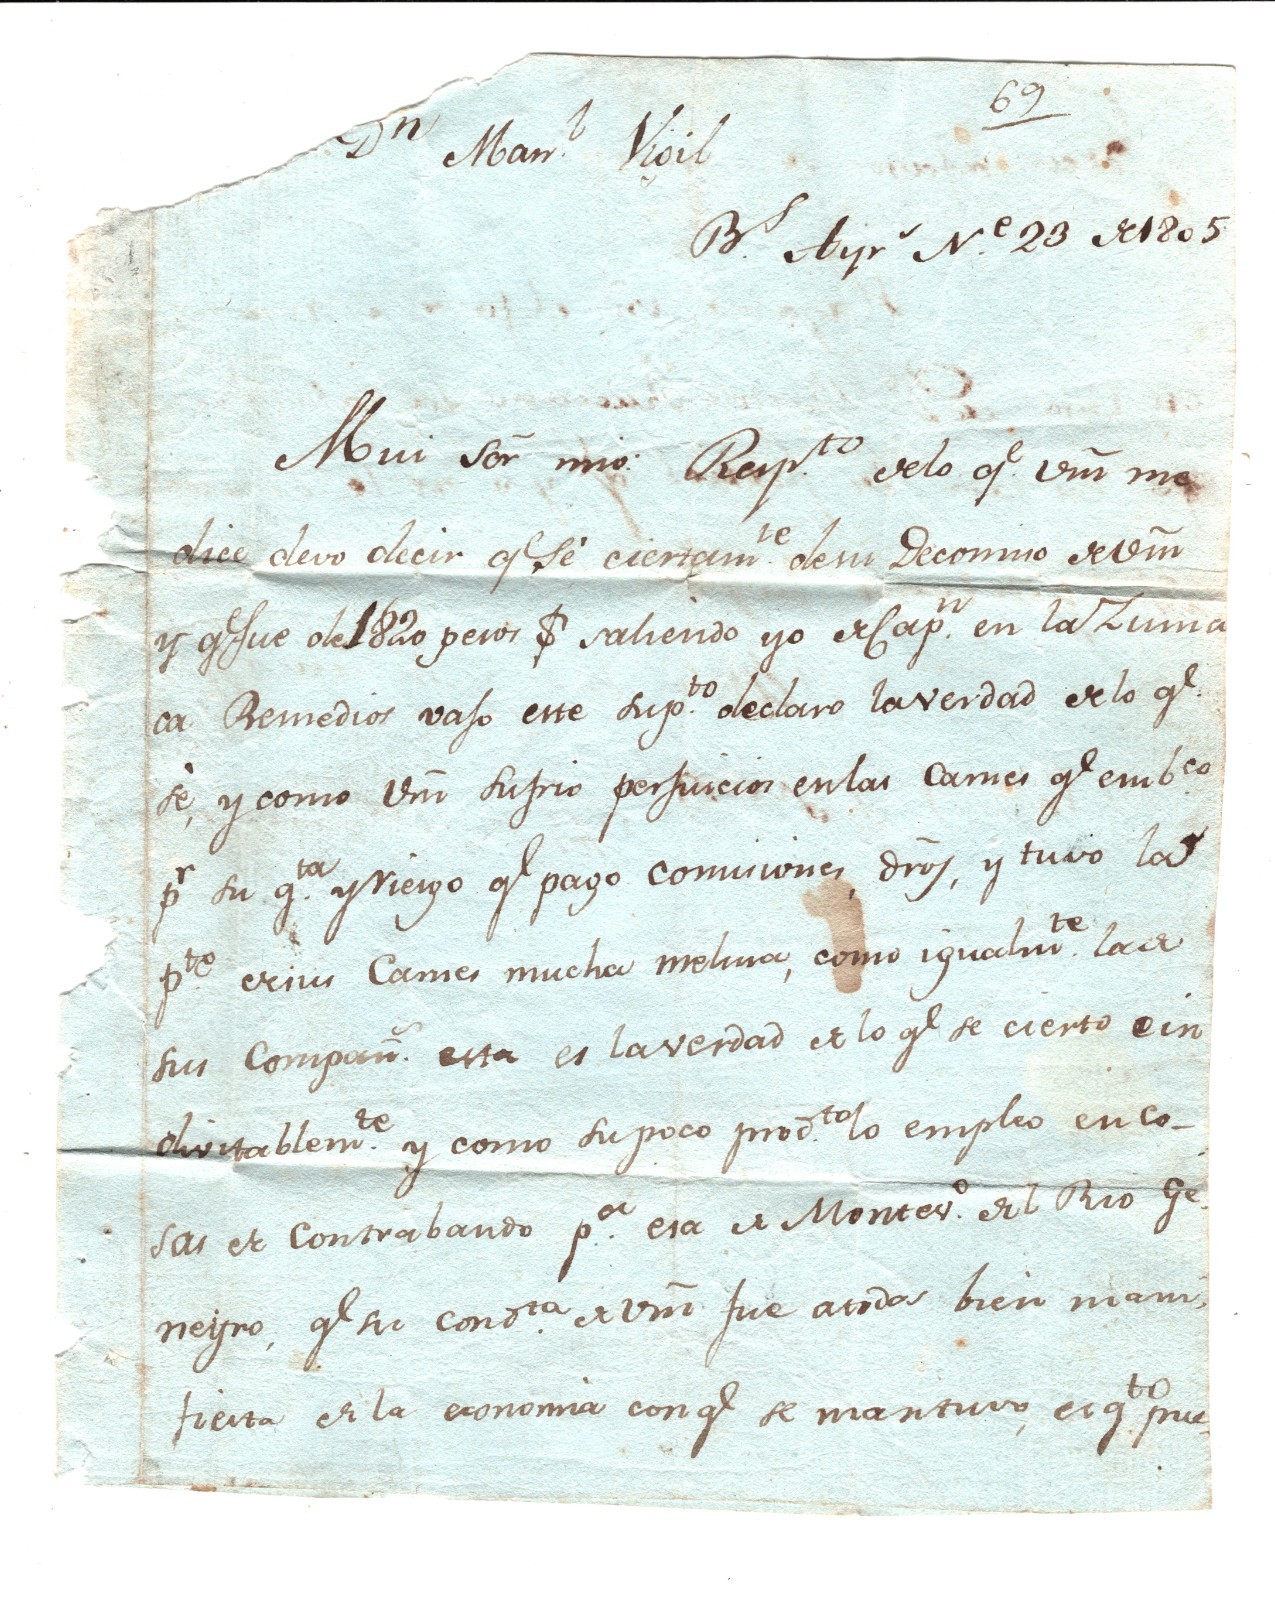 69
Dn Man.l Vigil
Bs. Ayrs Ne. 23 de 1805
Mui Sor mio: Resp.to de lo q.e Vm me
dice devo decir qe sé ciertam.te de su Decomiso de Vm
y qe fue de 1820 pesos $ saliendo yo de Cap.n en la Zuma
ca Remedios vaso este sup.to declaro la verdad de lo qe.
sé, y como Vm sufrio perjuicios en las Carnes qe emb.co
pr su q.ta y riesgo qe pago comisiones, dros, y tuvo la
p.te de sus Carnes mucha melma, como igualm.te la de
sus Compañs. esta es la verdad de lo qe se cierto e in
divitablem.te y como su poco prod.to lo empleo en co-
sas de Contrabando p.a esa de Montevo. del Rio Ge.
neyro, qe su cond.ta de Vm fue a todos bien mani,
fiesta de la economia con qe se mantuvo, es q.to pue,